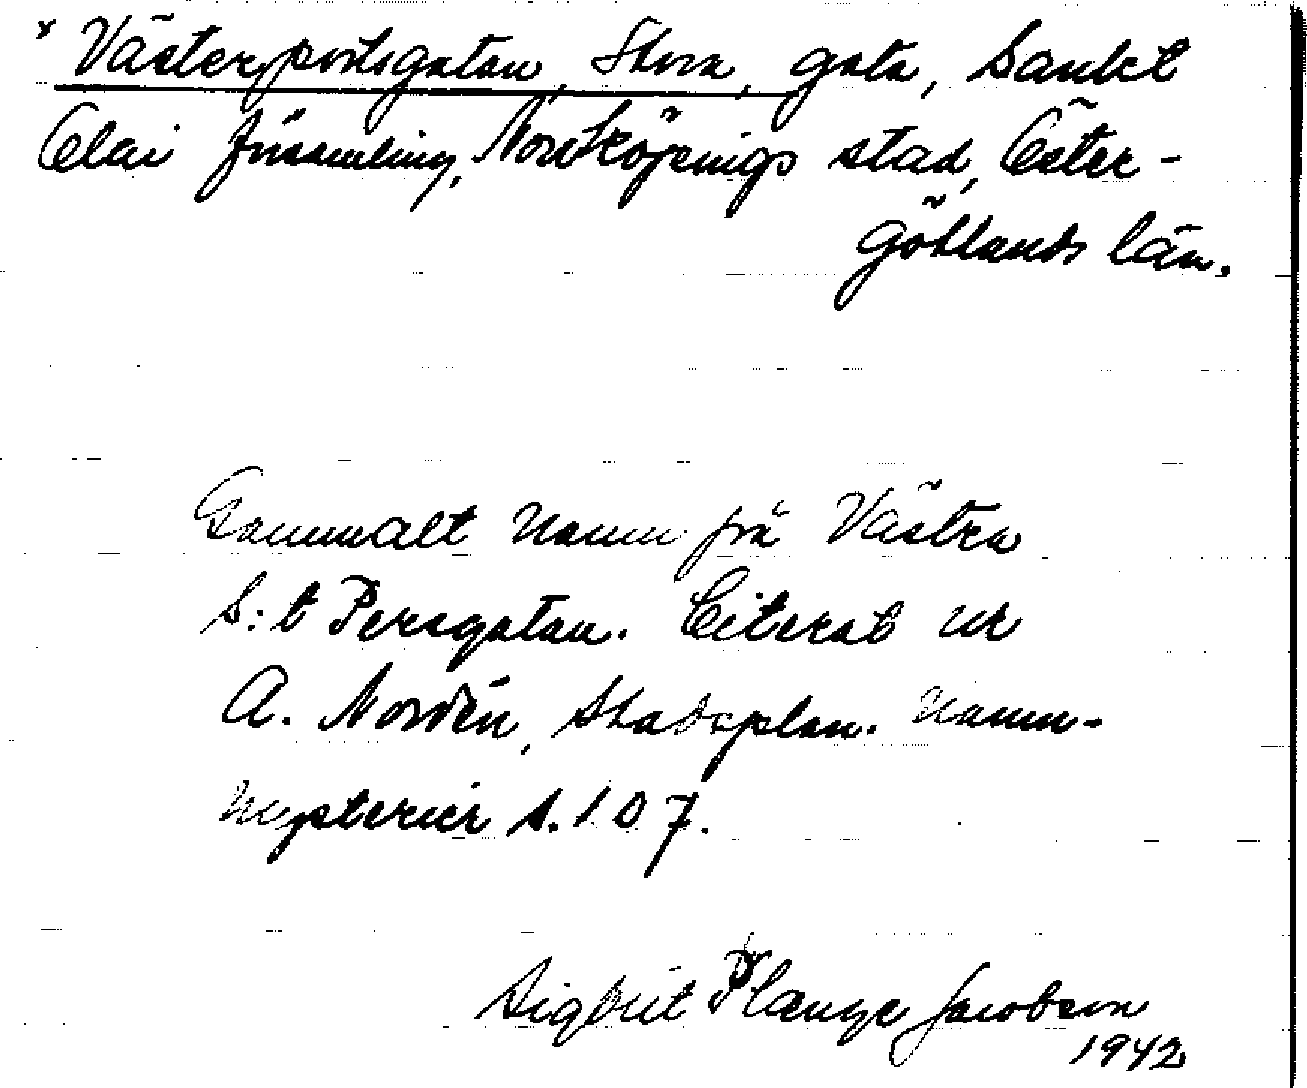 * Västerportsgatan, Stora, gata, Sankt
Olai församling, Norrköpings stad, Öster-
götlands län.
Gammalt namn på Västra
S:t Persgatan. Citerat ur
A. Nordén, Stadsplan. Namn-
mysterier s. 107.
Sigbrit Plænge Jacobson
1942